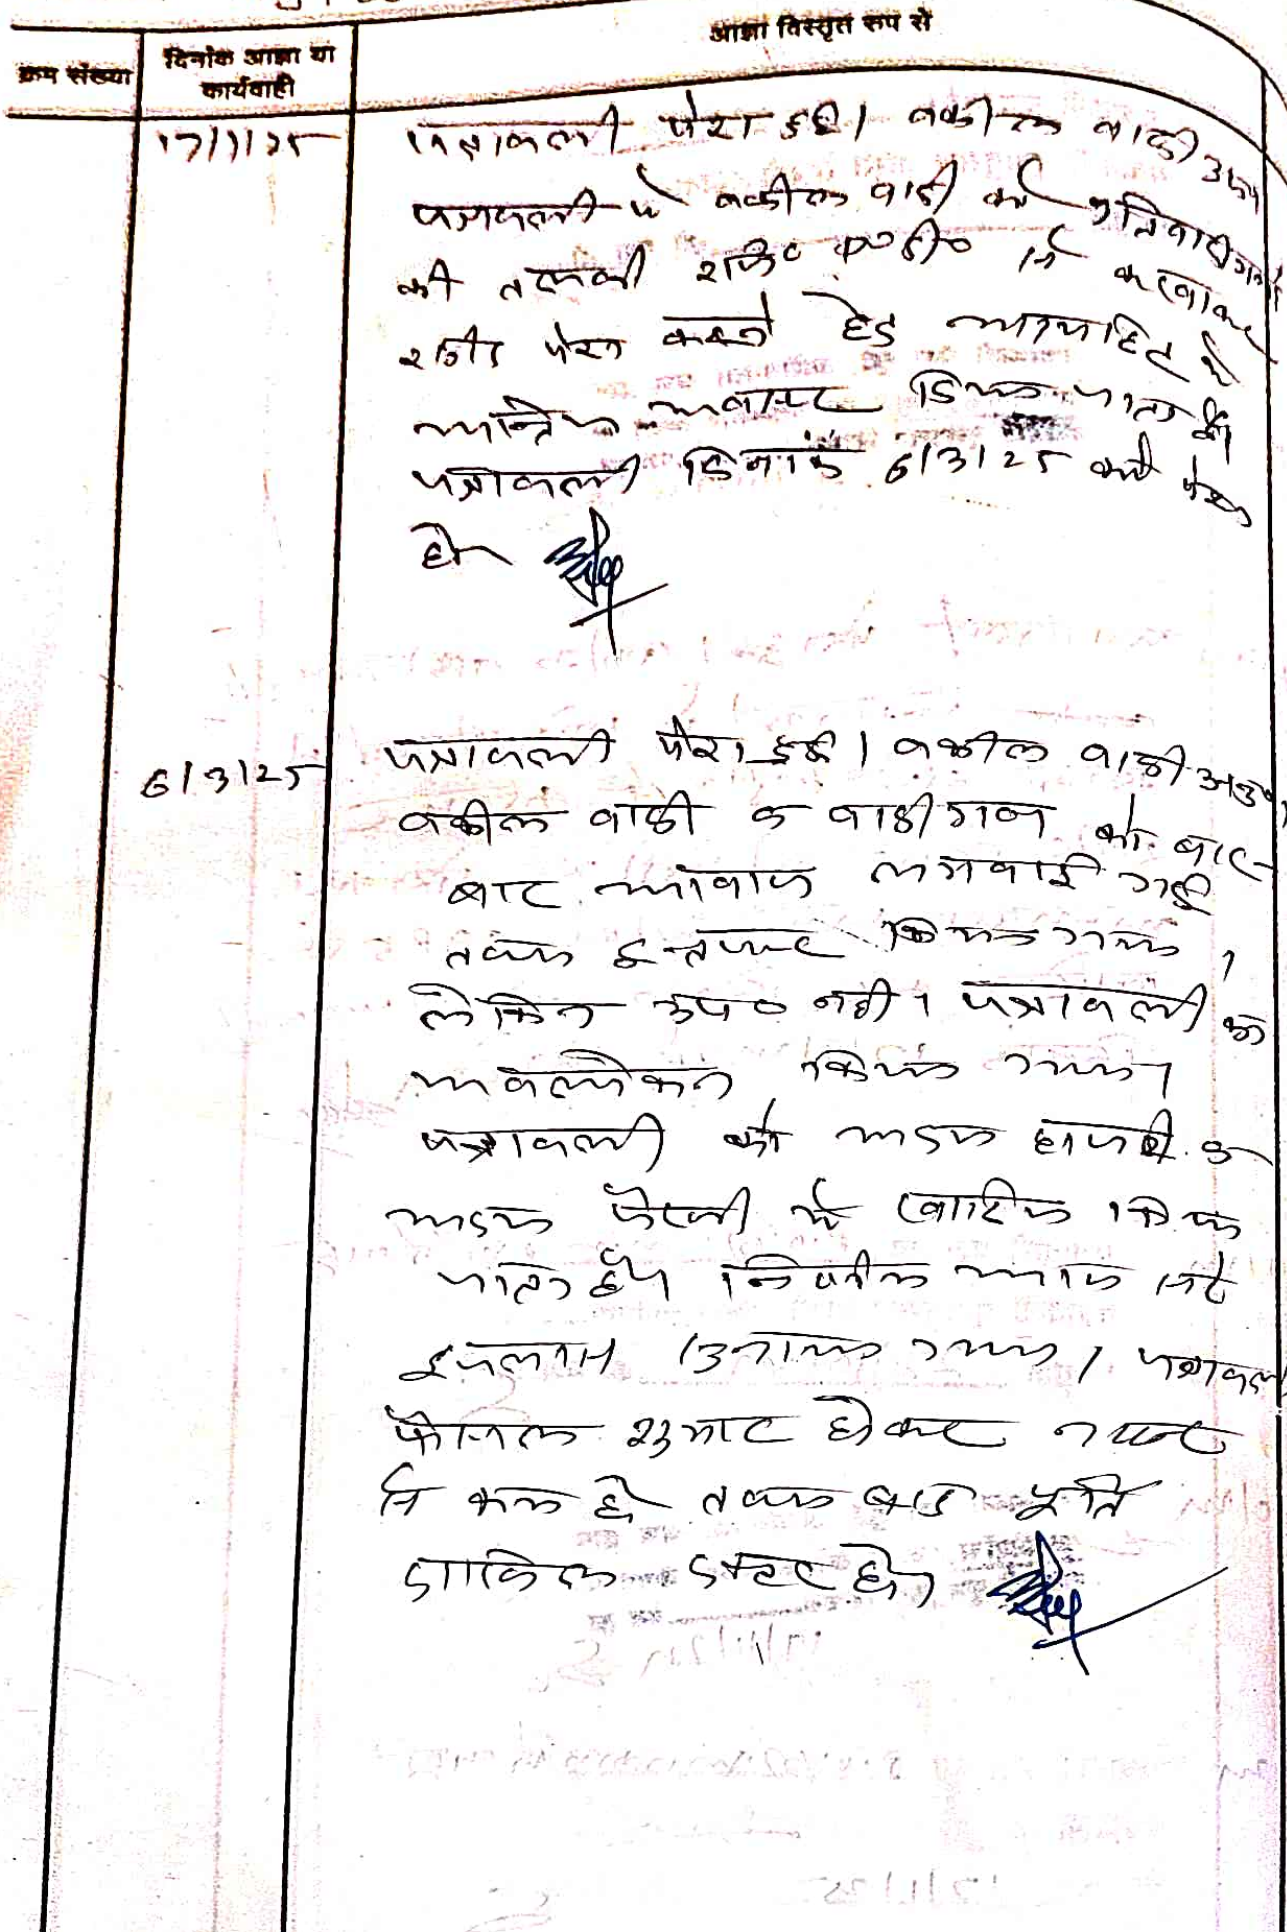 आज्ञा विस्तृत रूप से
क्रम संख्या
दिनांक आज्ञा या
कार्यवाही
17/1/25
पत्रावली पेश हुई। वकील वादी उप०
पत्रावली में वकील वादी को प्रतिवादीगणों
की तलबी रजि० ए०डी० से करवाकर
रसीद पेश करने हेतु न्यायहित में
अन्तिम अवसर दिया जाता है।
पत्रावली दिनांक 6/3/25 को पेश
हो
6/3/25
पत्रावली पेश हुई। वकील वादी अनु०
वकील वादी व वादीगण को बार-
बार आवाज लगवाई गई
तथा इन्तजार किया गया,
लेकिन उप० नहीं। पत्रावली का
अवलोकन किया गया।
पत्रावली को अदम हाजरी व
अदम पैरवी में खारिज किया
जाता है। निर्णय आज सरे
इजलास सुनाया गया। पत्रावली
फैसल शुमार होकर नम्बर
से कम हो तथा बाद पूर्ति
दाखिल दफ्तर हो।